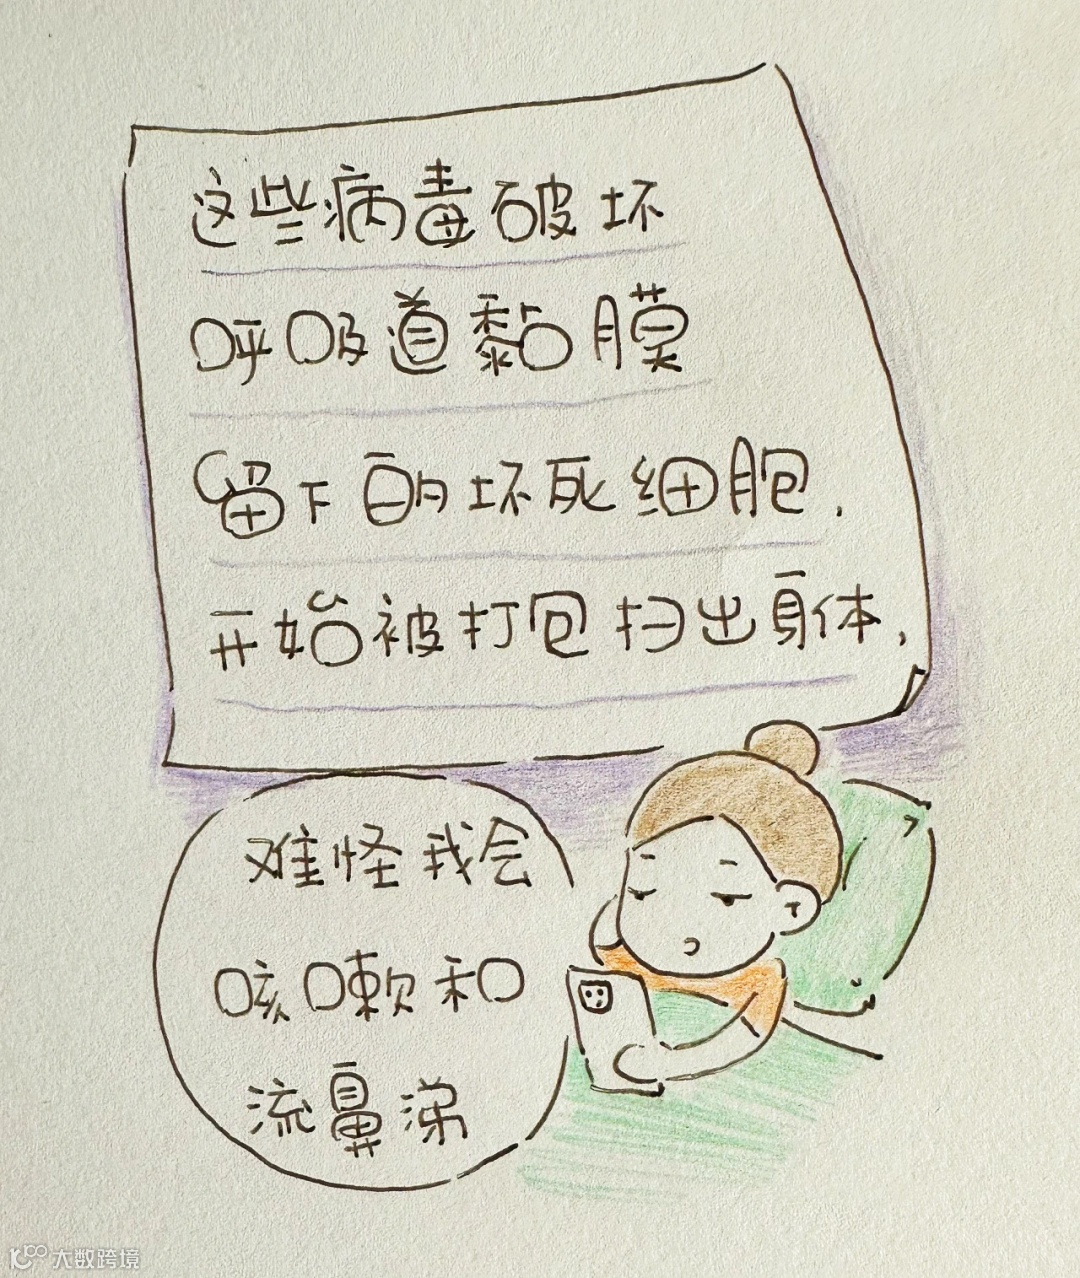 这些病毒破坏
呼吸道黏膜
留下的坏死细胞.
开始被打包扫出身体,
难怪我会
咳嗽和
流鼻涕
大数跨境